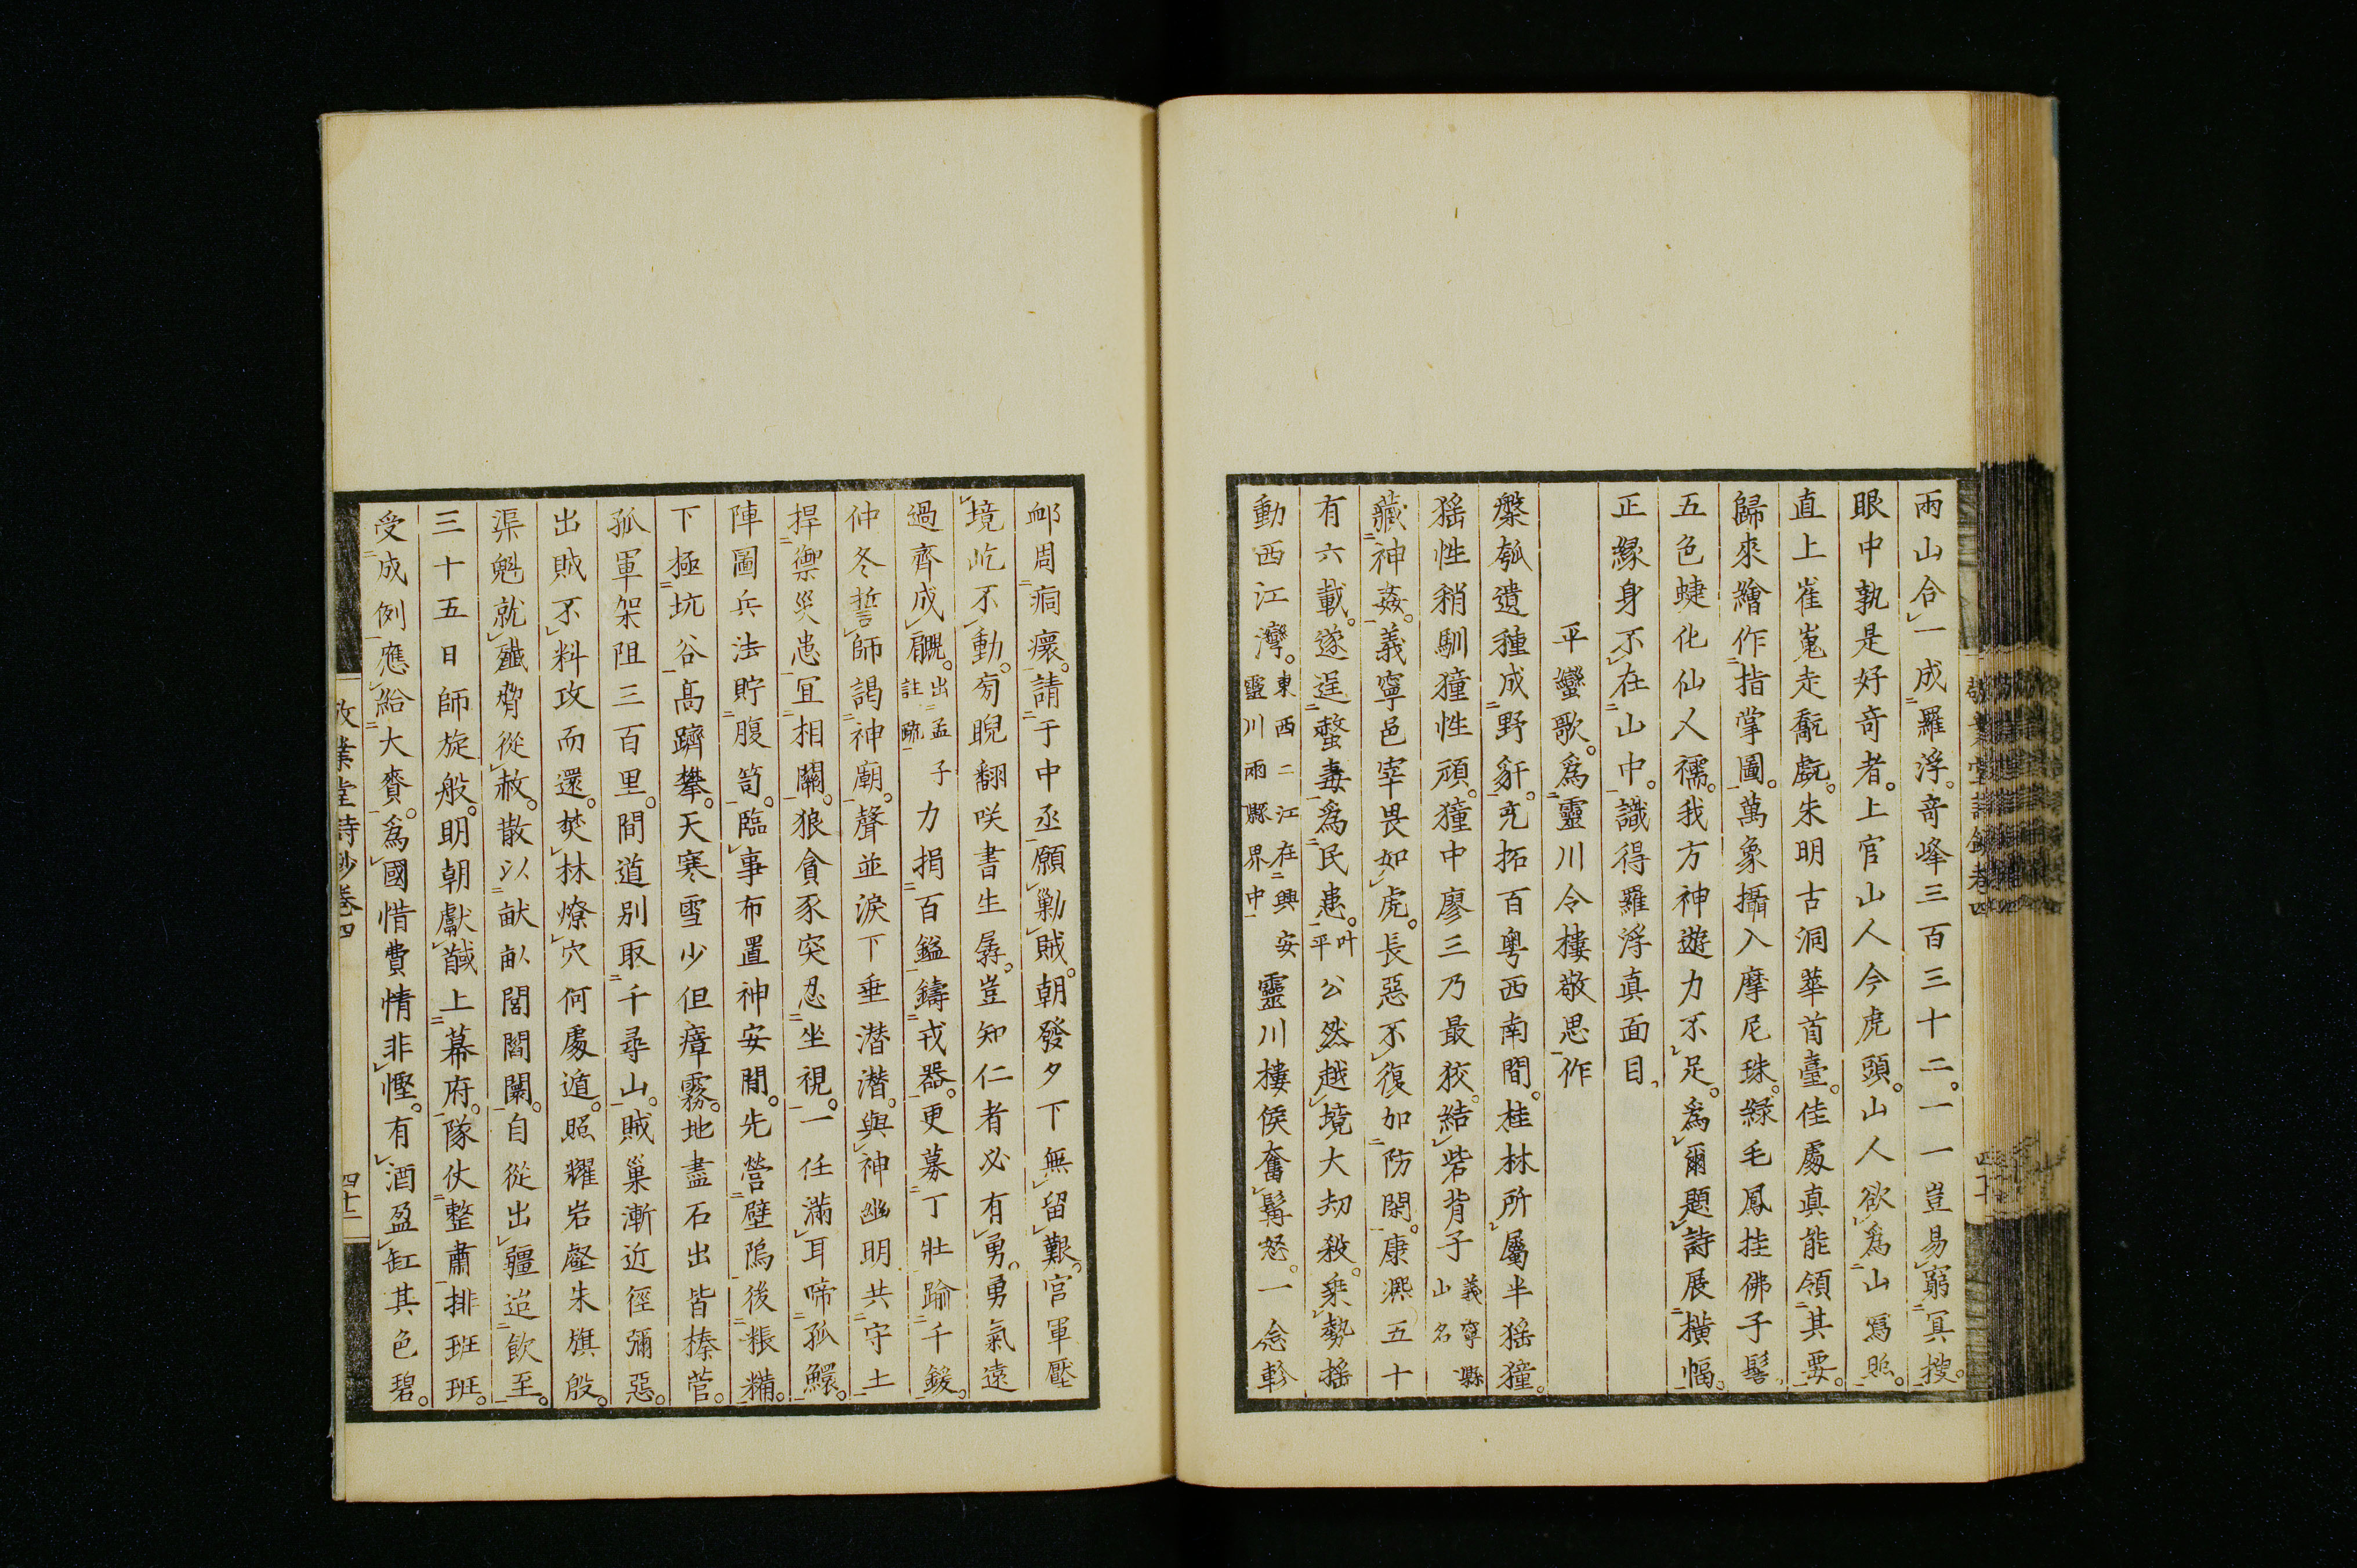 兩山合一成羅浮。奇峰三百三十二。一一豈易窮冥搜。
眼中孰是好奇者。上官山人今虎頭。山人欲爲山寫照。
直上崔嵬走巚巘。朱明古洞華首臺。佳處真能領其要。
歸來繪作指掌圖。萬象攝入摩尼珠。緑毛鳳挂佛子髻。
五色蜨化仙人襦。我方神遊力不足。爲爾題詩展橫幅。
正緣身不在山中。識得羅浮真面目。
平蠻歌。爲靈川令樓敬思作
槃瓠遺種成野豻。充拓百粤西南間。桂林所屬半猺獞。
猺性稍馴獞性頑。獞中廖三乃最狡。結砦背子義寧縣山名
藏神姦。義寧邑宰畏如虎。長惡不復加防閑。康熙五十
有六載。遂逞螫毒爲民患。叶平公然越境大刧殺。乘勢摇
動西江灣。東西二江在興安靈川兩縣界中靈川樓侯奮髯怒。一念軫
䘏周痌瘝。請于中丞願剿賊。朝發夕下無留艱。官軍壓
境屹不動。旁睨翻咲書生孱。豈知仁者必有勇。勇氣遠
過齊成覵。出孟子註疏力捐百鎰鑄戎器。更募丁壯踰千鍰。
仲冬誓師謁神廟。聲並淚下垂潸潸。與神幽明共守土
捍禦災患宜相關。狼貪豕突忍坐視。一任滿耳啼孤鰥。
陣圖兵法貯腹笥。臨事布置神安閒。先營壁隖後粻糒。
下極坑谷高躋攀。天寒雪少但瘴霧。地盡石出皆榛菅。
孤軍架阻三百里。間道别取千尋山。賊巢漸近徑彌惡。
出賊不料攻而還。焚林燎穴何處遁。照耀岩壑朱旗殷。
渠魁就殲脅從赦。散以畎畝閭閻闤。自從出疆迨飲至。
三十五日師旋般。明朝獻馘上幕府。隊仗整肅排班班。
受成例應給大賚。爲國惜費情非慳。有酒盈缸其色碧。
敬業堂詩鈔卷四
四十二